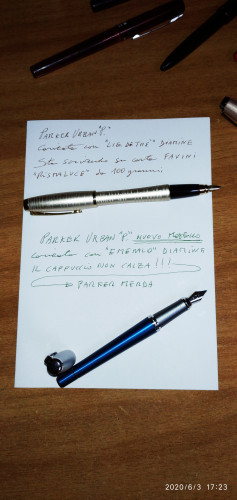 PARKER URBAN "P."
CARICATA CON "LIE DE THÉ" DIAMINE
STO SCRIVENDO SU CARTA FAVINI
"RISMALUCE" DA 100 grammi.
PARKER URBAN "P" NUOVO MODELLO
CARICATA CON "EMERALD" DIAMINE
IL CAPPUCCIO NON CALZA !!!
PARKER MERDA
2020/6/3 17:23